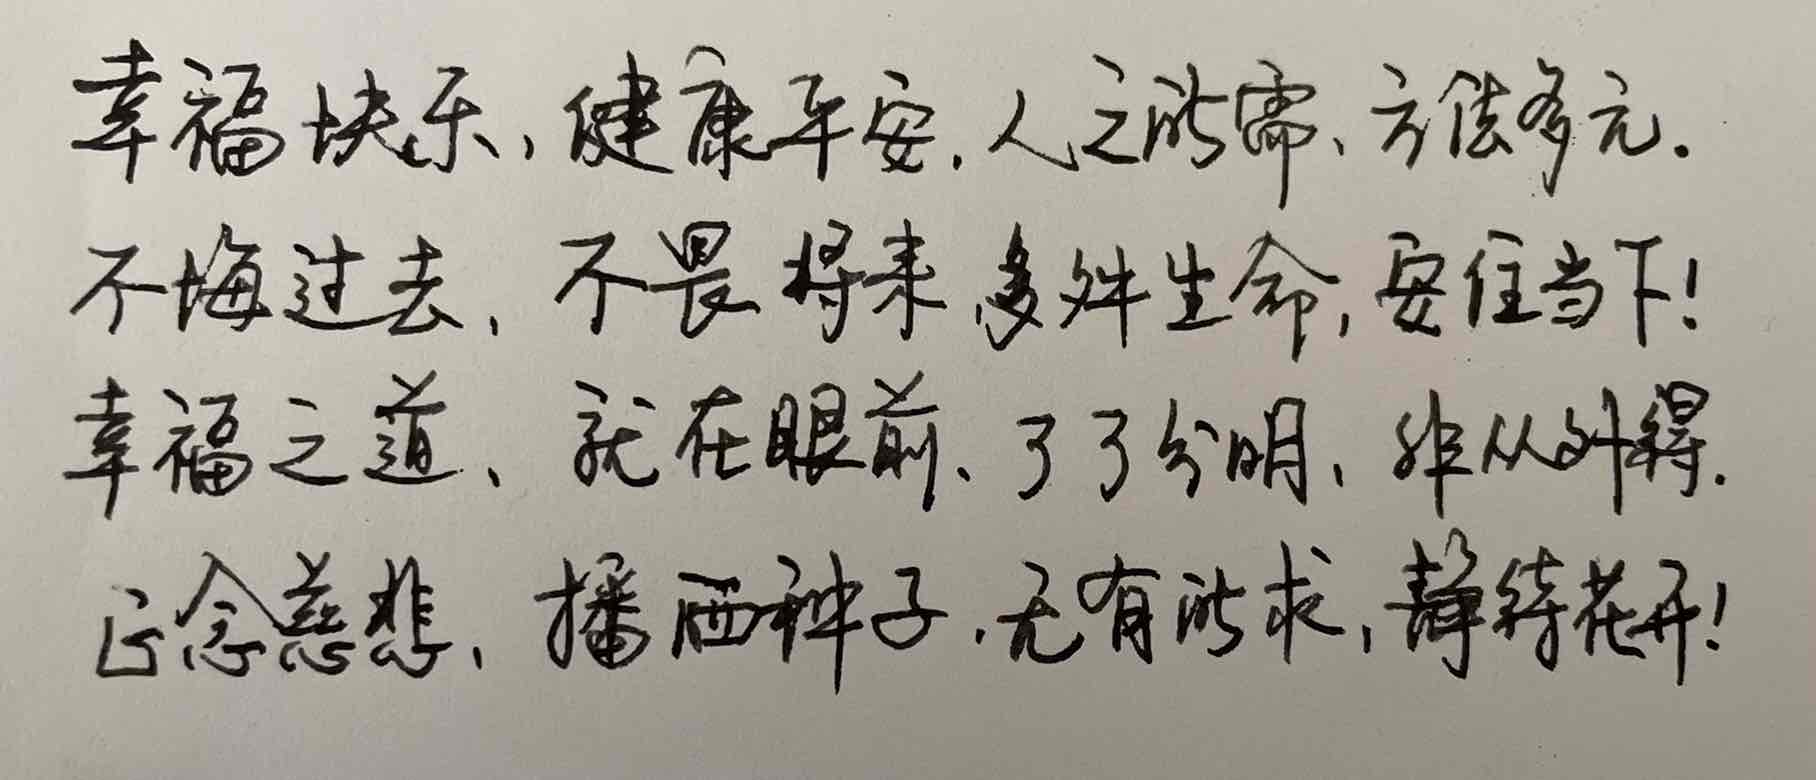 幸福快乐，健康平安，人之所需、方法多元。
不悔过去、不畏将来，多姿生命，安住当下！
幸福之道、就在眼前、了了分明、非从外得。
正念慈悲、播洒种子，无有所求，静待花开！